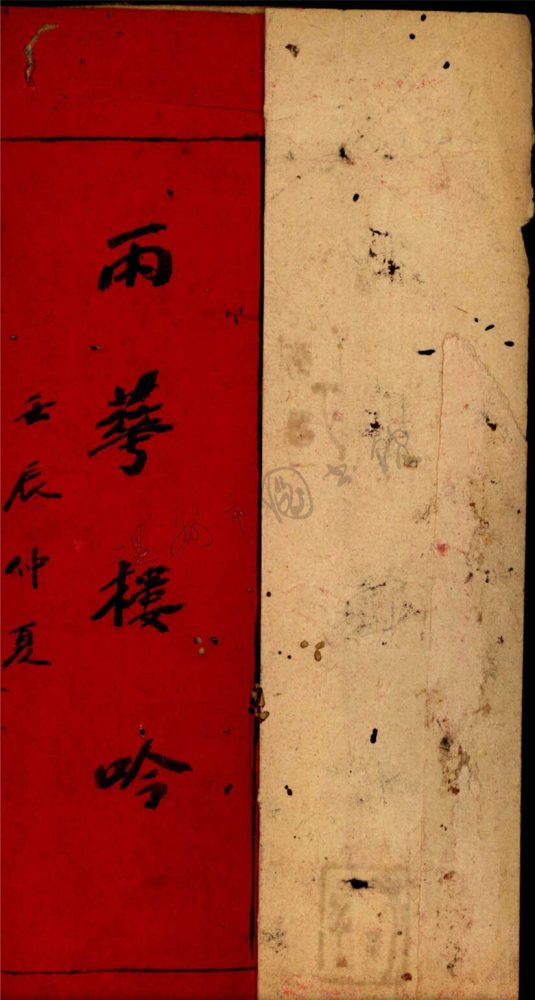 雨華樓吟
壬辰仲夏